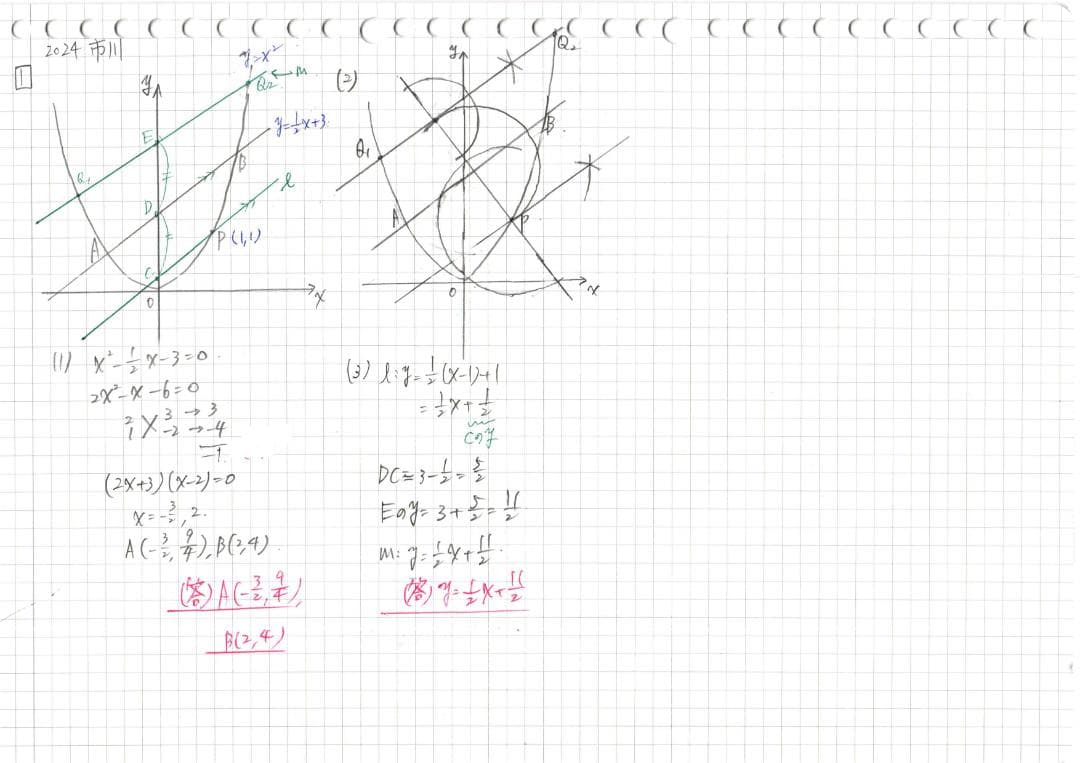 2024 市川
1
y=x²
Q₂ ← m
y
E
y=½x+3
Q₁
D
B
l
A
P(1,1)
C
O
x
(2)
y
Q₂
Q₁
B
A
P
O
x
(1) x²-½x-3=0
2x²-x-6=0
2 3 → 3
1 -2 → -4
-1
(2x+3)(x-2)=0
x=-3/2, 2.
A(-3/2, 9/4), B(2,4)
(答) A(-3/2, 9/4),
B(2,4)
(3) l: y=½(x-1)+1
=½x+½
Cのy
DC=3-½=5/2
Eのy=3+5/2=11/2
m: y=½x+11/2.
(答) y=½x+11/2